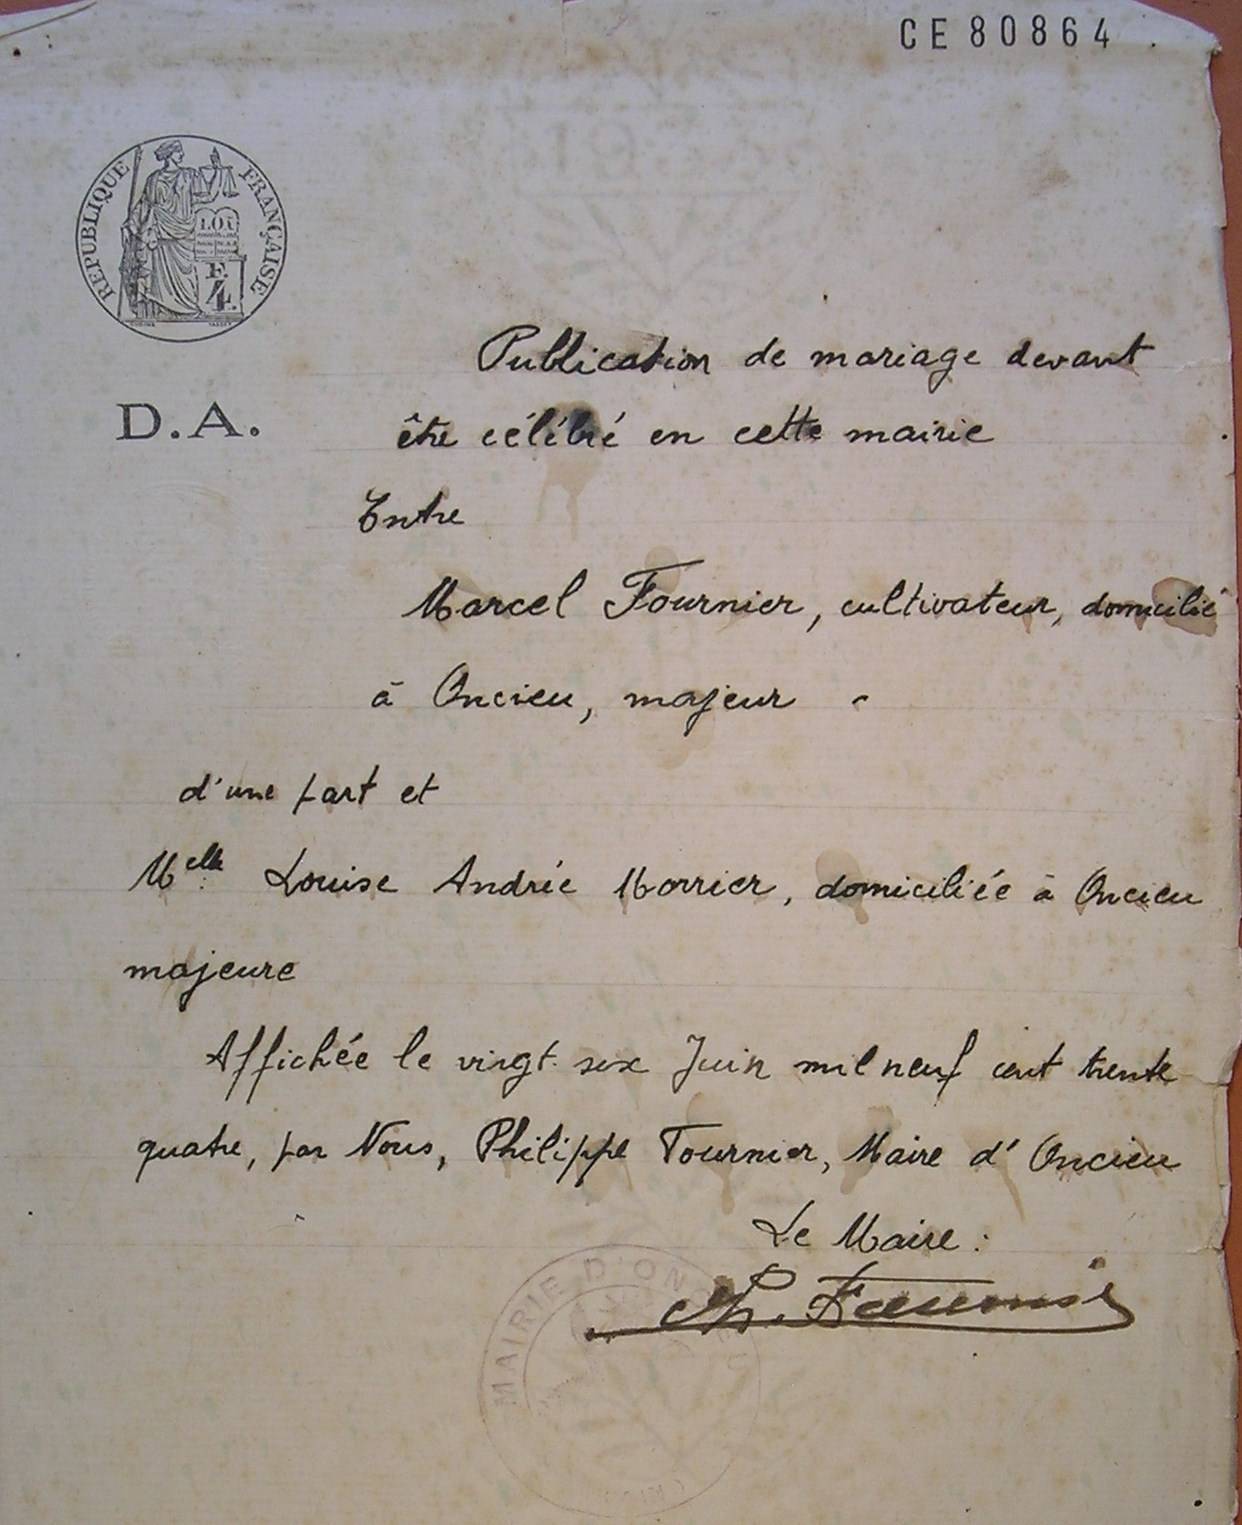 CE 80864
REPUBLIQUE FRANÇAISE
LOI
F.
4.
D.A.
Publication de mariage devant
être célébré en cette mairie
Entre
Marcel Fournier, cultivateur, domicilié
à Oncieu, majeur -
d'une part et
Melle Louise Andrée Morrier, domiciliée à Oncieu
majeure
Affichée le vingt six Juin mil neuf cent trente
quatre, par Nous, Philippe Tournier, Maire d'Oncieu
Le Maire :
Ph.
MAIRIE D'ON